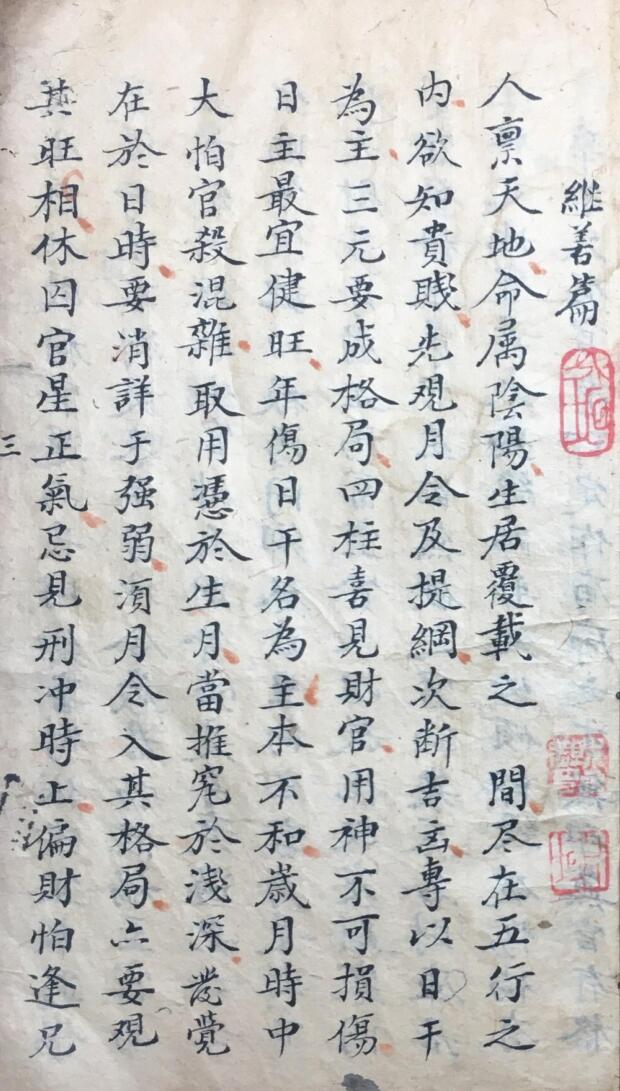 継善篇
人禀天地命属陰陽生居覆載之 間尽在五行之
内欲知貴賤先观月令及提綱次断吉㐫專以日干
為主三元要成格局四柱喜見財官用神不可損傷
日主最宜健旺年傷日干名為主本不和歲月時中
大怕官殺混雜取用憑於生月當推究於浅深發覺
在於日時要消詳于强弱須月令入其格局亦要观
其旺相休囚官星正氣忌見刑冲時上偏財怕逢兄
三